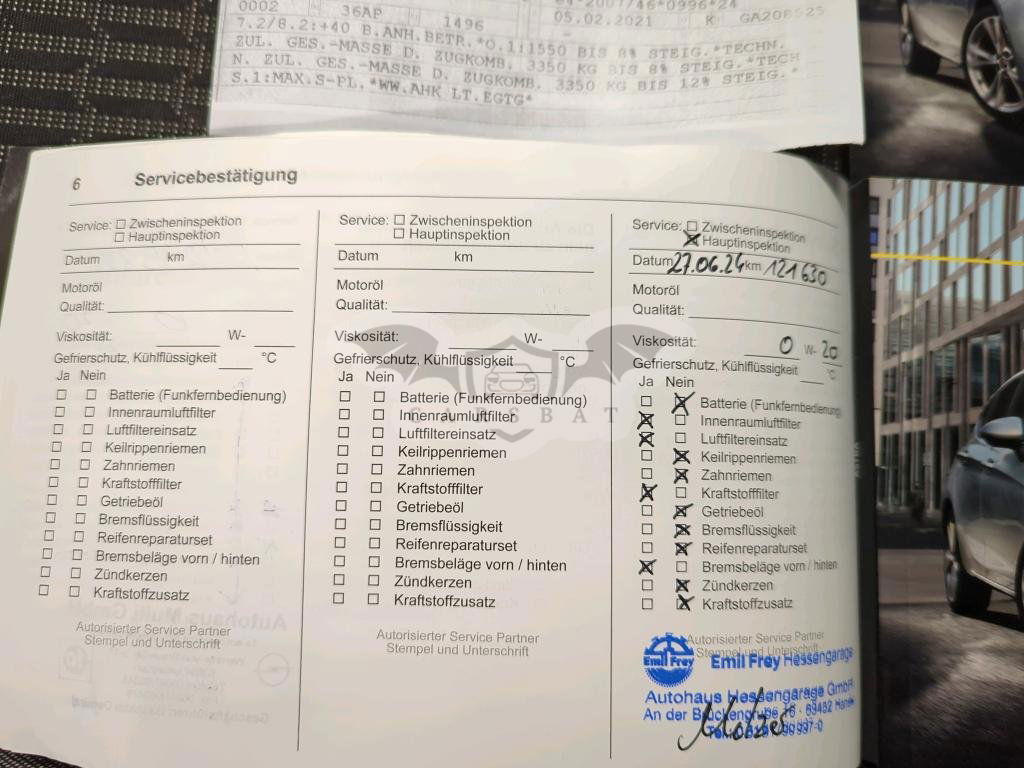 0002 36AP 1496 05.02.2021 K
7.2/8.2:+40 B.ANH.BETR.*O.1:1550 BIS 8% STEIG.*TECHN.
ZUL. GES.-MASSE D. ZUGKOMB. 3350 KG BIS 8% STEIG.*TECH
N. ZUL. GES.-MASSE D. ZUGKOMB. 3350 KG BIS 12% STEIG.*
S.1:MAX.S-PL.*WW.AHK LT.EGTG*
6 Servicebestätigung
Service: Zwischeninspektion
Hauptinspektion
Datum km
Motoröl
Qualität:
Viskosität: W-
Gefrierschutz, Kühlflüssigkeit °C
Ja Nein
Batterie (Funkfernbedienung)
Innenraumluftfilter
Luftfiltereinsatz
Keilrippenriemen
Zahnriemen
Kraftstofffilter
Getriebeöl
Bremsflüssigkeit
Reifenreparaturset
Bremsbeläge vorn / hinten
Zündkerzen
Kraftstoffzusatz
Autorisierter Service Partner
Stempel und Unterschrift
Service: Zwischeninspektion
Hauptinspektion
Datum km
Motoröl
Qualität:
Viskosität: W-
Gefrierschutz, Kühlflüssigkeit °C
Ja Nein
Batterie (Funkfernbedienung)
Innenraumluftfilter
Luftfiltereinsatz
Keilrippenriemen
Zahnriemen
Kraftstofffilter
Getriebeöl
Bremsflüssigkeit
Reifenreparaturset
Bremsbeläge vorn / hinten
Zündkerzen
Kraftstoffzusatz
Autorisierter Service Partner
Stempel und Unterschrift
Service: Zwischeninspektion
Hauptinspektion
Datum 27.06.24 km 121630
Motoröl
Qualität:
Viskosität: 0 W- 20
Gefrierschutz, Kühlflüssigkeit °C
Ja Nein
Batterie (Funkfernbedienung
Innenraumluftfilter
Luftfiltereinsatz
Keilrippenriemen
Zahnriemen
Kraftstofffilter
Getriebeöl
Bremsflüssigkeit
Reifenreparaturset
Bremsbeläge vorn / hinten
Zündkerzen
Kraftstoffzusatz
Autorisierter Service Partner
Stempel und Unterschrift
Emil Frey Emil Frey Hessengarage
Autohaus Hessengarage GmbH
An der Brückengrube
CARSBAT